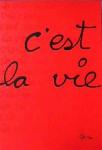 c'est
la vie